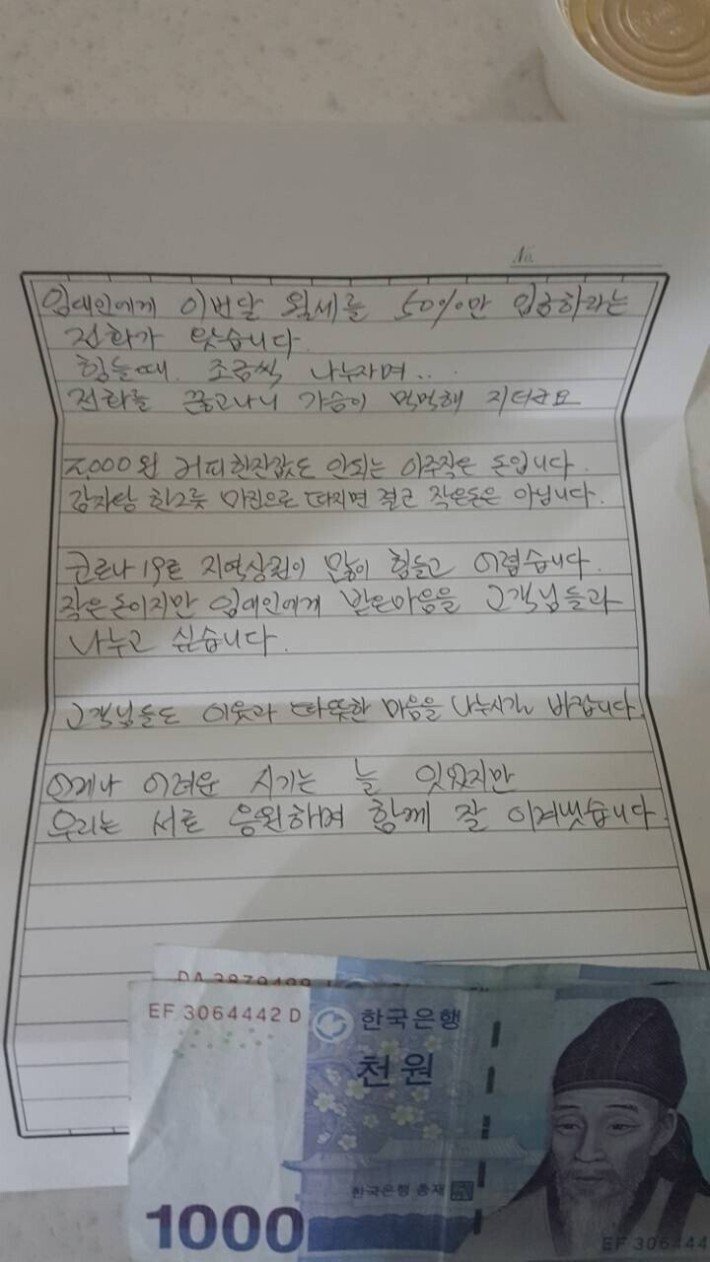 No.
임대인에게 이번달 월세를 50%만 입금하라는
전화가 왔습니다.
힘들때. 조금씩 나누자며..
전화를 끊고나니 가슴이 먹먹해 지더라구요
2,000원 커피한잔값도 안되는 아주작은 돈입니다.
감자탕 한그릇 마진으로 따지면 결코 작은돈은 아닙니다.
코로나19로 지역상권이 많이 힘들고 어렵습니다.
작은돈이지만 임대인에게 받은마음을 고객님들과
나누고 싶습니다.
고객님들도 이웃과 따뜻한 마음을 나누시길 바랍니다.
언제나 어려운 시기는 늘 있었지만
우리는 서로 응원하며 함께 잘 이겨냈습니다.
EF 3064442 D
한국은행
천원
한국은행 총재
1000